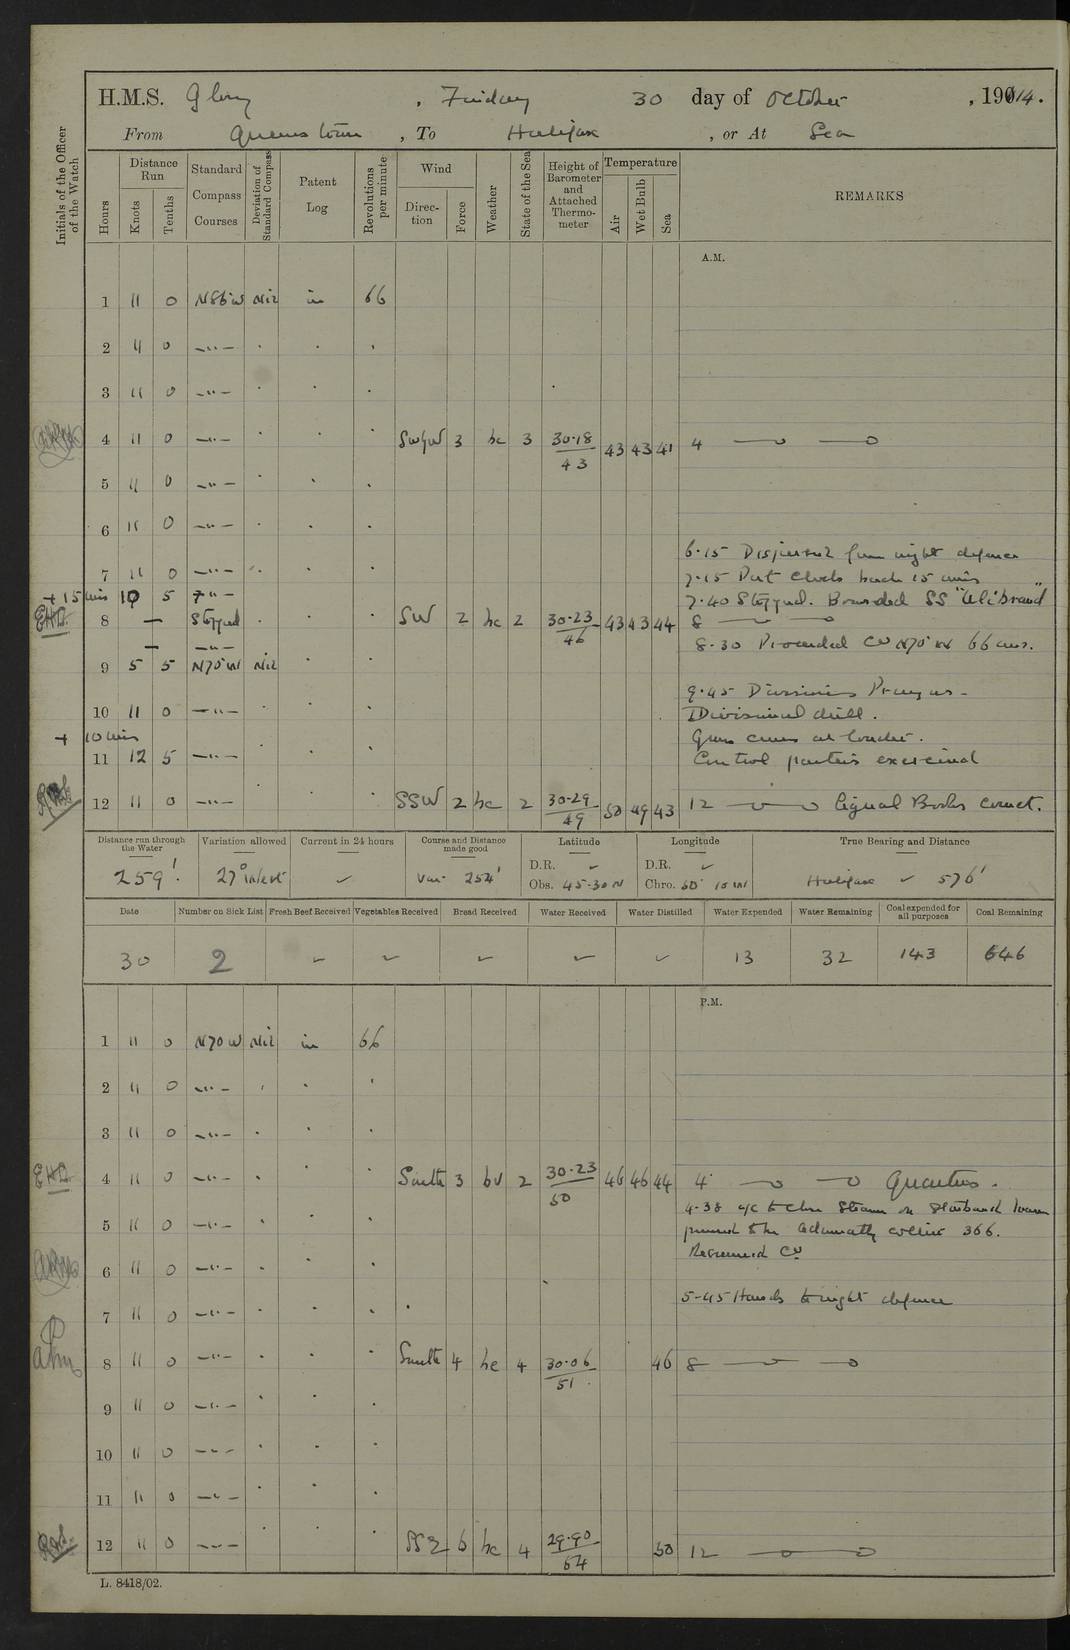 H.M.S. Glory , Friday 30 day of October , 1914.
From Queenstown , To Halifax , or At Sea
Initials of the Officer of the Watch
Hours
Distance Run
Knots
Tenths
Standard Compass Courses
Deviation of Standard Compass
Patent Log
Revolutions per minute
Wind
Direction
Force
Weather
State of the Sea
Height of Barometer and Attached Thermometer
Temperature
Air
Wet Bulb
Sea
REMARKS
A.M.
1 11 0 N86W Nil in 66
2 11 0 —"—
3 11 0 —"—
4 11 0 —"— SWbyW 3 bc 3 30·18 43 43 43 41 4
5 11 0 —"—
6 11 0 —"—
6·15 Dispersed from night defence
7 11 0 —"— 7·15 Put Clocks back 15 mins
+ 15 mins 10 5 —"— 7·40 Stopped. Boarded SS
EHD 8 — Stopped SW 2 bc 2 30·23 46 43 43 44 8
8·30 Proceeded Co N70W 66 revs.
9 5 5 N70W Nil
9·45 Divisions Prayers –
10 11 0 —"— Divisional drill.
+ 10 min Guns crews at loader.
11 12 5 —"— Control parties exercised
12 11 0 —"— SSW 2 bc 2 30·29 49 50 49 43 12 Signal Books correct.
Distance run through the Water
Variation allowed
Current in 24 hours
Course and Distance made good
Latitude
Longitude
True Bearing and Distance
259'. 27° West ✓ Var. 254' D.R. ✓ D.R. ✓ Halifax ✓ 576'
Obs. 45-30 N Chro. 50° 15 W
Date
Number on Sick List
Fresh Beef Received
Vegetables Received
Bread Received
Water Received
Water Distilled
Water Expended
Water Remaining
Coal expended for all purposes
Coal Remaining
30 2 ✓ ✓ ✓ ✓ ✓ 13 32 143 646
P.M.
1 11 0 N70W Nil in 66
2 11 0 —"—
3 11 0 —"—
EHD 4 11 0 —"— South 3 bv 2 30·23 50 46 46 44 4 Quarters.
4·38 a/c to close Steamer on Starboard beam
5 11 0 —"— proved to be Admiralty collier 366.
Resumed Co
6 11 0 —"—
5-45 Hands to night defence
7 11 0 —"—
8 11 0 —"— South 4 bc 4 30·06 51 46 8
9 11 0 —"—
10 11 0 —"—
11 11 0 —"—
12 11 0 —"— SSE 6 bc 4 29·90 54 50 12
L. 8418/02.